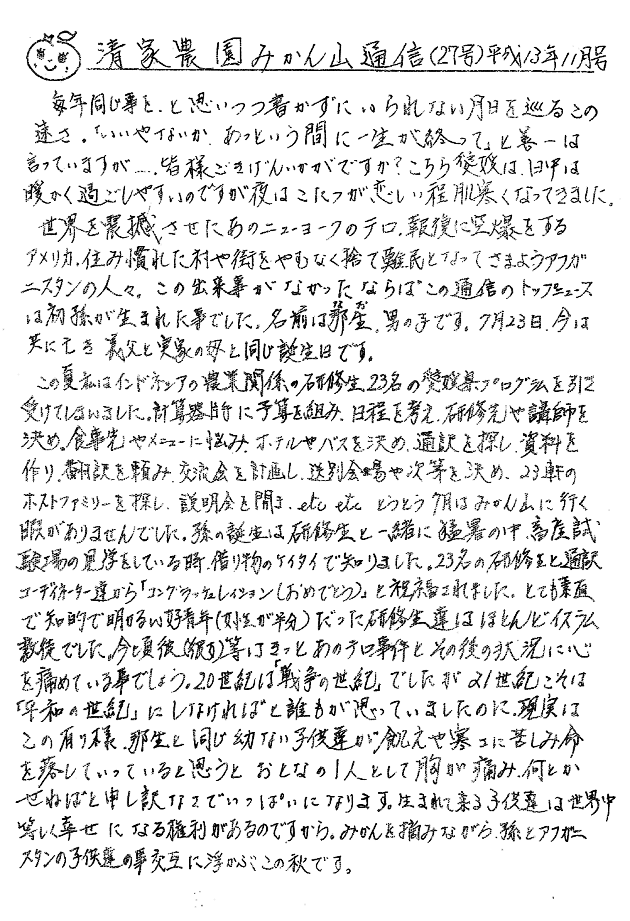 清家農園みかん山通信(27号)平成13年11月号
毎年同じ事を、と思いつつ書かずにいられない月日を巡るこの
速さ。「いいやないか、あっという間に一生が終って」と善一は
言っていますが……。皆様ごきげんいかがですか?こちら愛媛は、日中は
暖かく過ごしやすいのですが夜はこたつが恋しい程肌寒くなってきました。
世界を震撼させたあのニューヨークのテロ、報復に空爆をする
アメリカ、住み慣れた村や街をやむなく捨て難民となってさまようアフガ
ニスタンの人々。この出来事がなかったならばこの通信のトップニュース
は初孫が生まれた事でした。名前は那生、男の子です。7月23日、今は
共に亡き義父と実家の母と同じ誕生日です。
この夏私はインドネシアの農業関係の研修生23名の愛媛県プログラムを引き
受けてしまいました。計算器片手に予算を組み、日程を考え、研修先や講師を
決め。食事先やメニューに悩み、ホテルやバスを決め、通訳を探し、資料を
作り、翻訳を頼み、交流会を計画し、送別会場や次第を決め、23軒の
ホストファミリーを探し、説明会を開き、etc etc とうとう7月はみかん山に行く
暇がありませんでした。孫の誕生は研修生と一緒に猛暑の中、畜産試
験場の見学をしている時、借り物のケイタイで知りました。23名の研修生と通訳
コーディネーター達から「コングラッチュレイション(おめでとう)」と祝福されました。とても素直
で知的で明かるい好青年(女性が半分)だった研修生達はほとんどイスラム
教徒でした。今頃彼(彼女)等はきっとあのテロ事件とその後の状況に心
を痛めている事でしょう。20世紀は「戦争の世紀」でしたが21世紀こそは
「平和の世紀」にしなければと誰もが思っていましたのに、現実は
この有り様、那生と同じ幼ない子供達が飢えや寒さに苦しみ命
を落していっていると思うと おとなの1人として胸が痛み、何とか
せねばと申し訳なさでいっぱいになります。生まれて来る子供達は世界中
等しく幸せになる権利があるのですから。みかんを摘みながら、孫とアフガニ
スタンの子供達の事交互に浮かぶこの秋です。